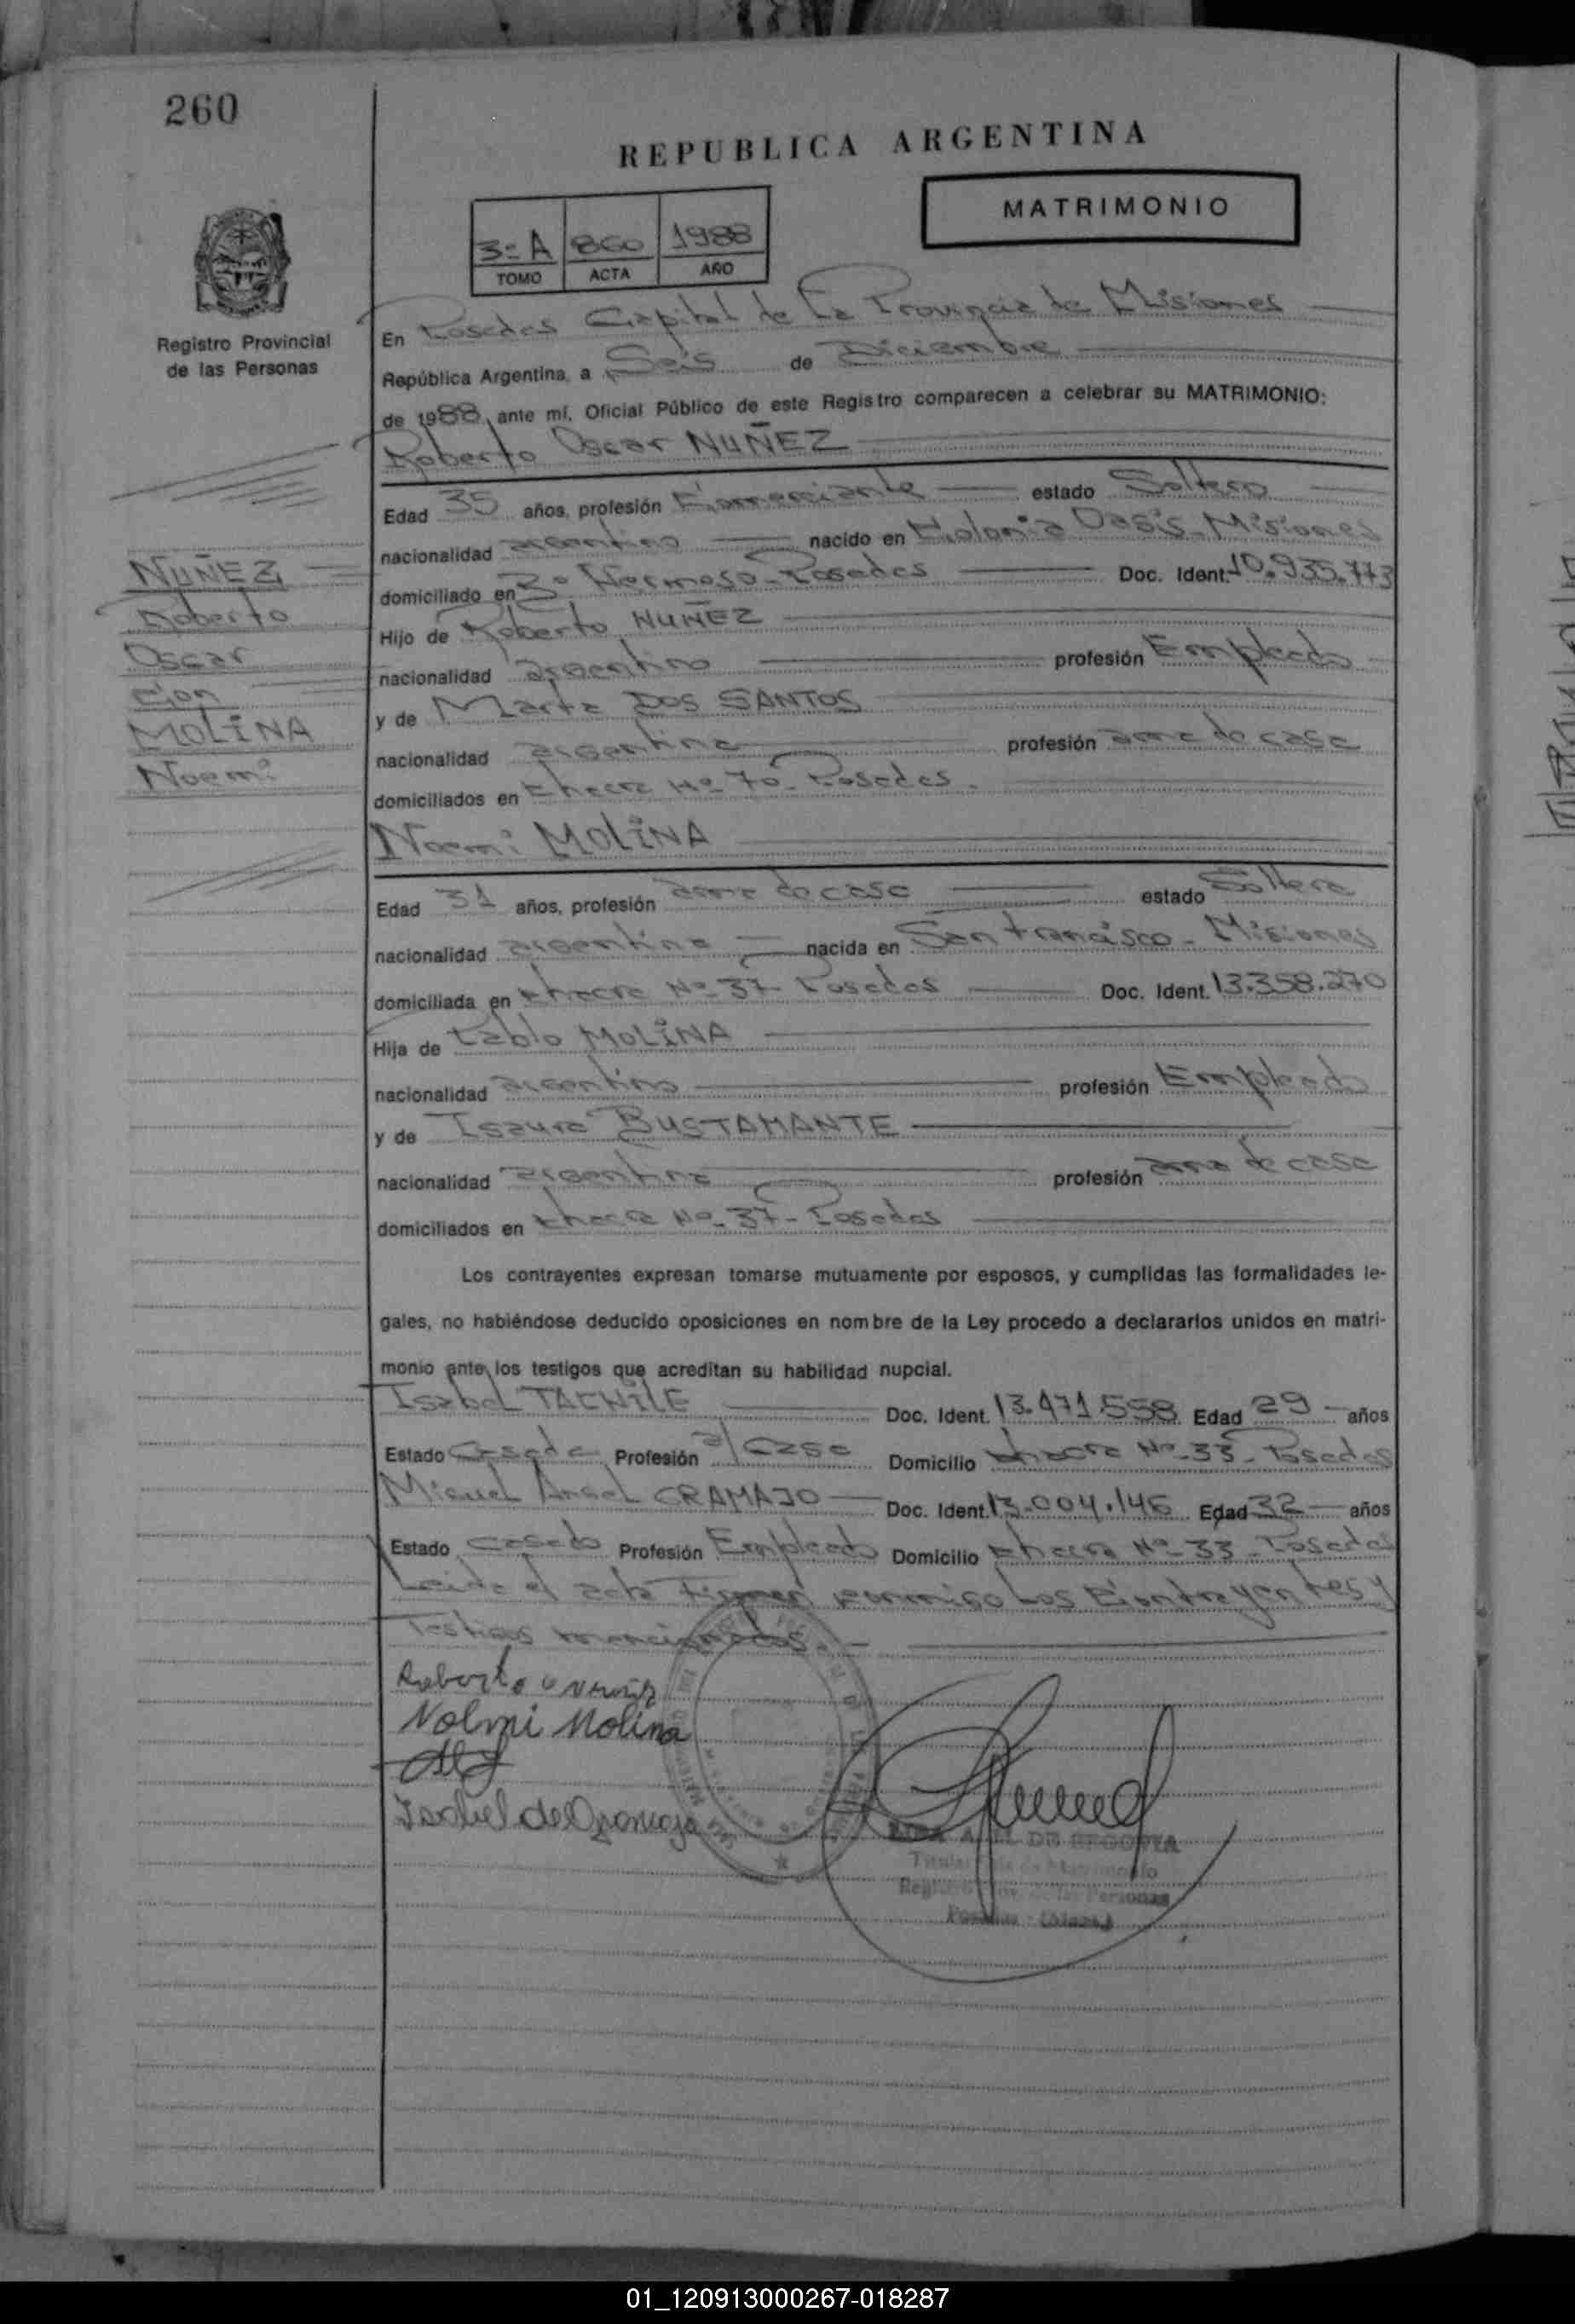 260
REPUBLICA ARGENTINA
MATRIMONIO
3º A 860 1988
TOMO ACTA AÑO
Registro Provincial
de las Personas
En Posadas Capital de La Provincia de Misiones
República Argentina, a Seis de Diciembre
de 1988, ante mí, Oficial Público de este Registro comparecen a celebrar su MATRIMONIO:
Roberto Oscar NUÑEZ
Edad 35 años, profesión Comerciante estado Soltero
nacionalidad argentino nacido en Colonia Oasis - Misiones
domiciliado en Bº Hermoso - Posadas Doc. Ident. 10.935.773
Hijo de Roberto NUÑEZ
nacionalidad argentino profesión Empleado
y de Marta DOS SANTOS
nacionalidad argentina profesión ama de casa
domiciliados en Chacra Nº 70 - Posadas.
NUÑEZ
Roberto
Oscar
con
MOLINA
Noemi
Noemi MOLINA
Edad 31 años, profesión ama de casa estado Soltera
nacionalidad argentina nacida en San Francisco - Misiones
domiciliada en Chacra Nº 37 Posadas Doc. Ident. 13.358.270
Hija de Pablo MOLINA
nacionalidad argentino profesión Empleado
y de Isaura BUSTAMANTE
nacionalidad argentina profesión ama de casa
domiciliados en Chacra Nº 37 - Posadas
Los contrayentes expresan tomarse mutuamente por esposos, y cumplidas las formalidades le-
gales, no habiéndose deducido oposiciones en nombre de la Ley procedo a declararlos unidos en matri-
monio ante los testigos que acreditan su habilidad nupcial.
Isabel Doc. Ident. 13.471.558 Edad 29 años
Estado Casada Profesión a/ Casa Domicilio Chacra Nº 33 - Posadas
Miguel Angel GRAMAJO Doc. Ident. 13.004.146 Edad 32 años
Estado Casado Profesión Empleado Domicilio Chacra Nº 33 - Posadas
Leida el acta Firman conmigo Los Contrayentes y
Testigos mencionados. -
Roberto o nuñez
Nolmi Molina
Isabel de Gramajo
DE SEGOVIA
Titular de Matrimonio
Registro de las Personas
Posadas - (Mnes.)
01_120913000267-018287